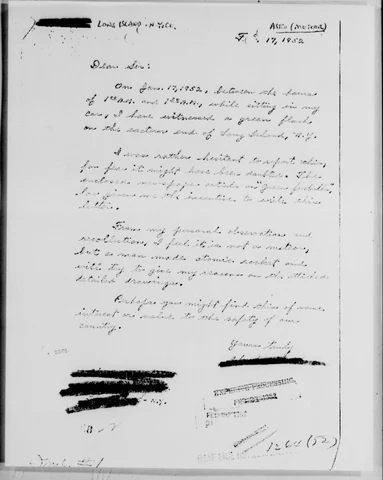 LONG ISLAND - N. YORK.
Feb. 17, 1952
Dear Sir:
On Jan. 17, 1952, between the hours
of 1:00 A.M. and 1:30 A.M., while sitting in my
car, I have witnessed a green flash
on the eastern end of Long Island, N.Y.
I was rather hesitant to report this,
for fear it might have been doubted. The
enclosed newspaper article on "green fireballs"
has given me the incentive to write this
letter.
From my personal observation and
recollection, I feel it is not a meteor,
but a man made atomic rocket and
will try to give my reasons on the attached
detailed drawings.
Perhaps you might find this of some
interest or value to the safety of our
country.
Yours truly
N.Y.
1264 (52)